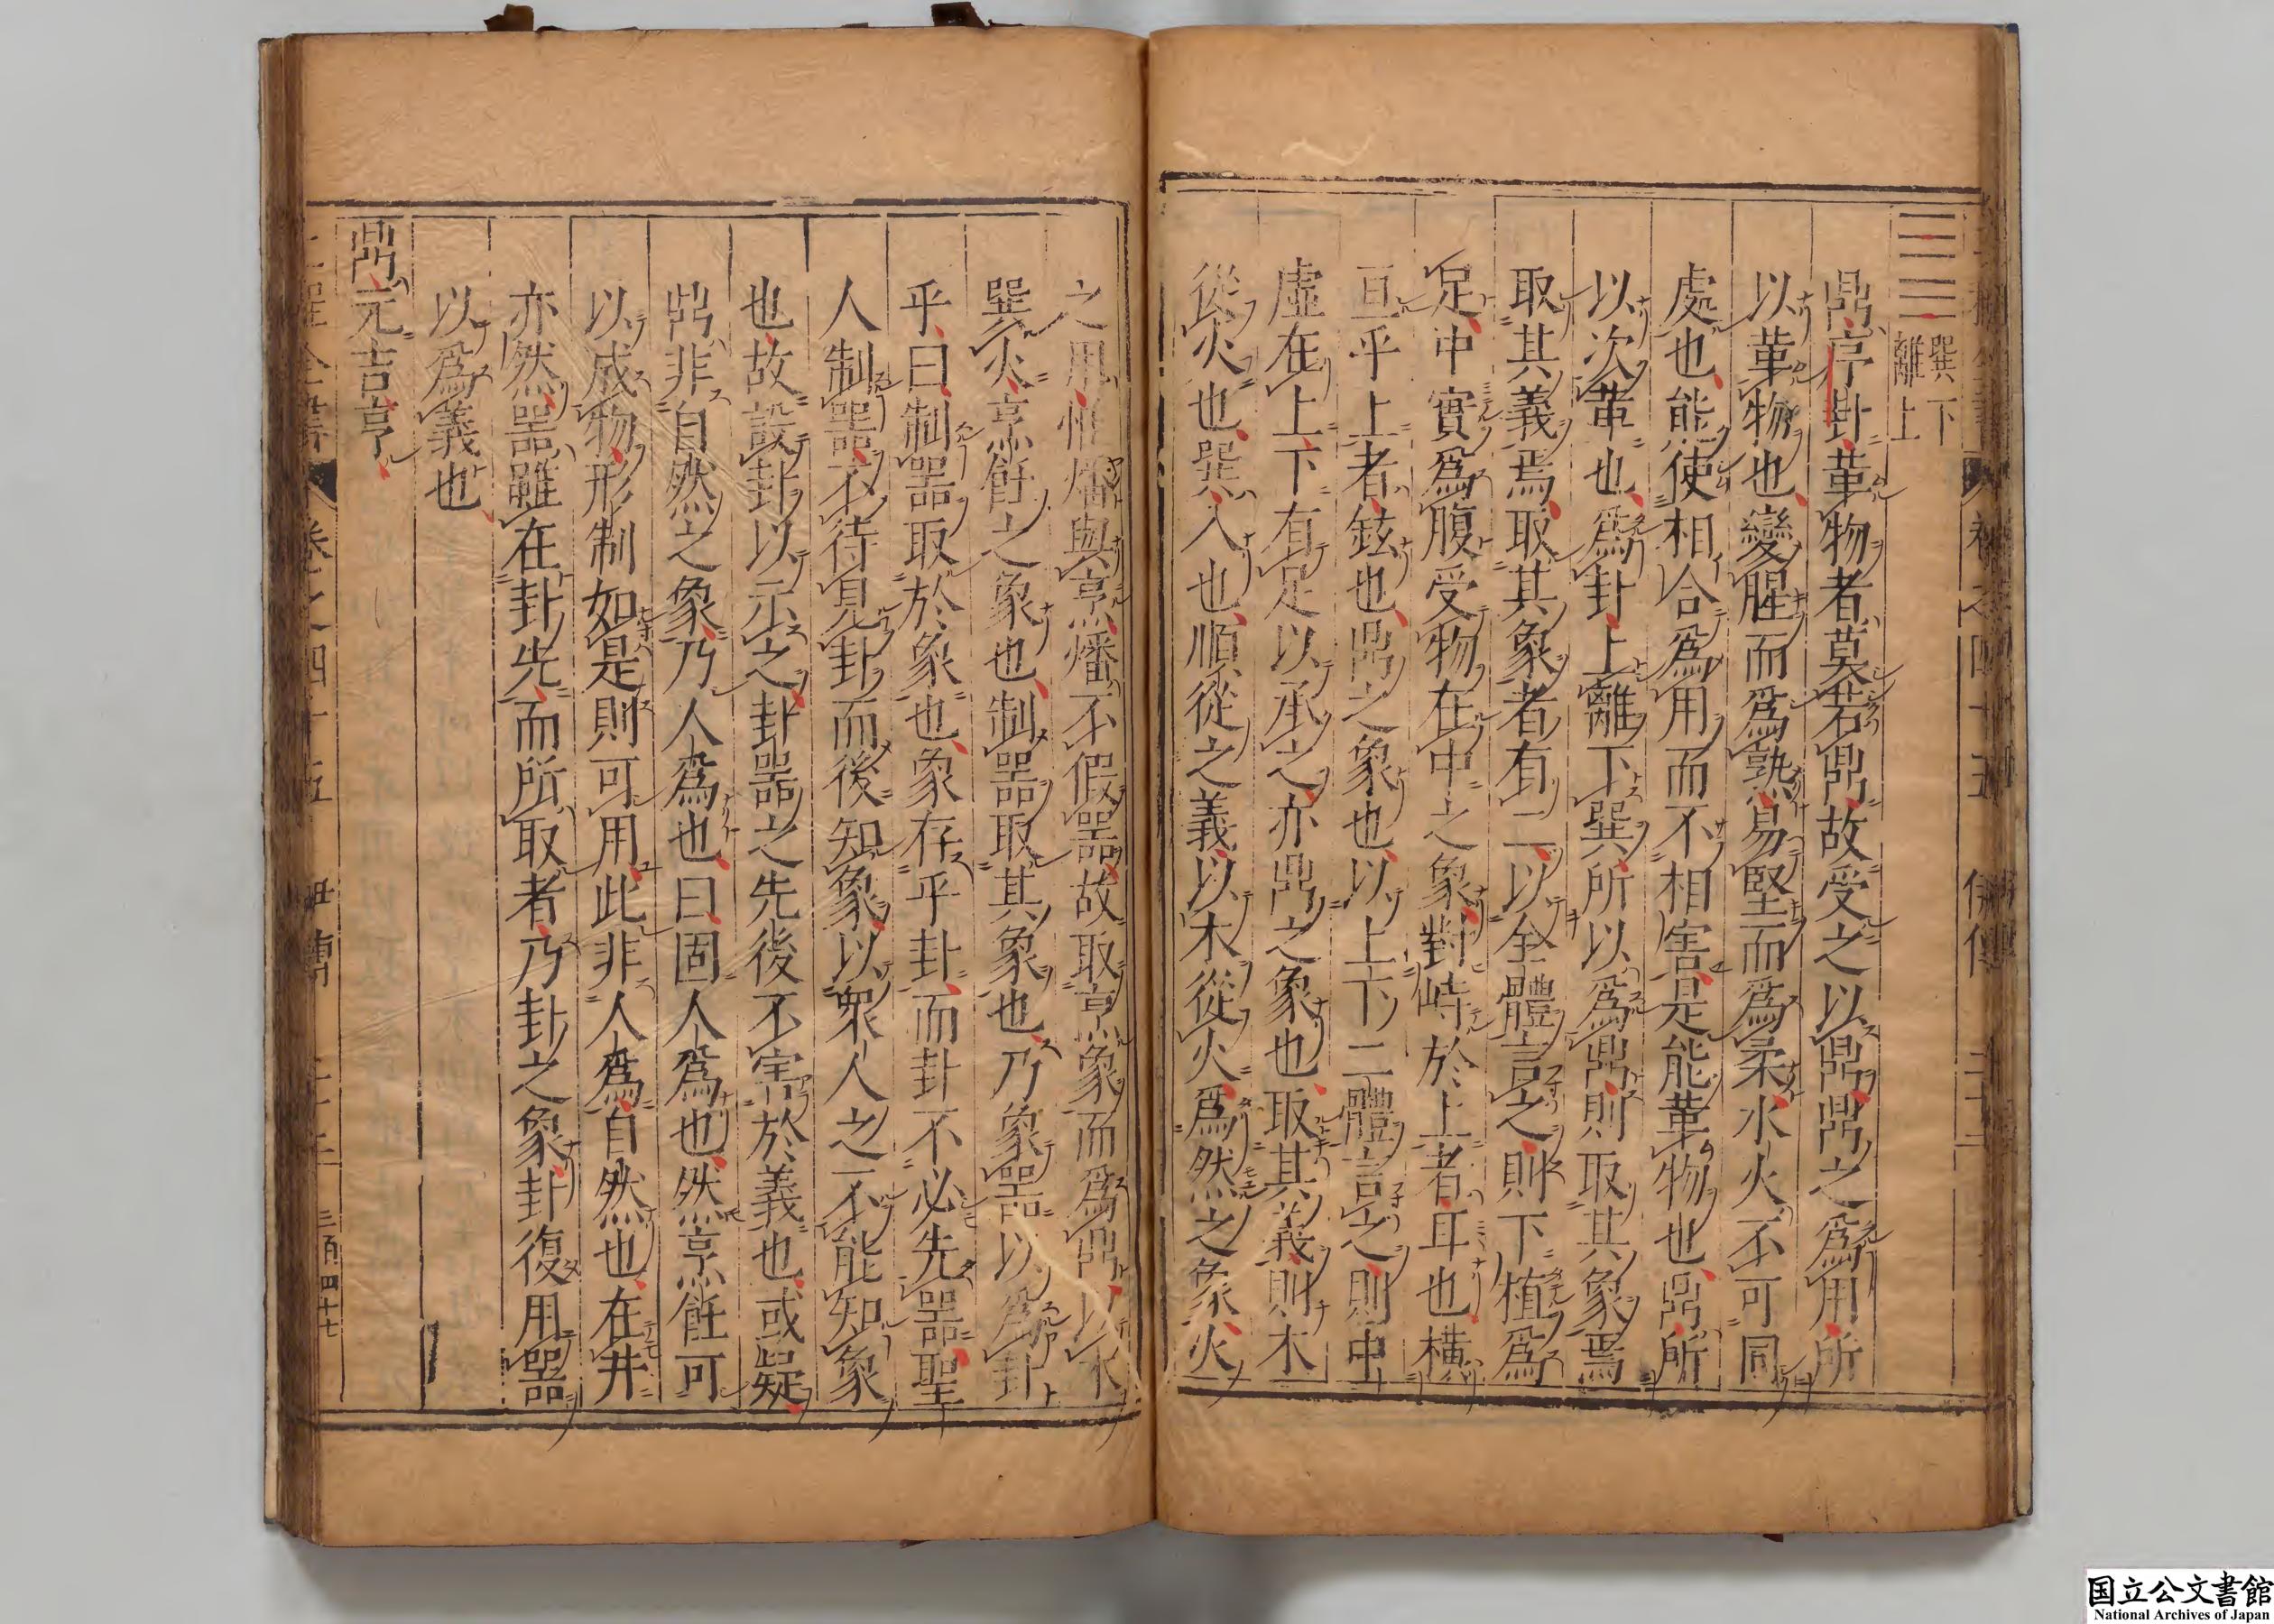 巽下
離上
鼎序卦革物者莫若鼎故受之以鼎鼎之爲用所
以革物也變腥而爲熟易堅而爲柔水火不可同
處也能使相合爲用而不相害是能革物也鼎所
以次革也爲卦上離下巽所以爲鼎則取其象焉
取其義焉取其象者有二以全體言之則下植爲
足中實爲腹受物在中之象對峙於上者耳也橫
亘乎上者鉉也鼎之象也以上下二體言之則中
虛在上下有足以承之亦鼎之象也取其義則木
從火也巽入也順從之義以木從火爲然之象火
之用惟燔與烹燔不假器故取烹象而爲鼎以木
巽火烹飪之象也制器取其象也乃象器以爲卦
乎曰制器取於象也象存乎卦而卦不必先器聖
人制器不待見卦而後知象以衆人之不能知象
也故設卦以示之卦器之先後不害於義也或疑
鼎非自然之象乃人爲也曰固人爲也然烹飪可
以成物形制如是則可用此非人爲自然也在井
亦然器雖在卦先而所取者乃卦之象卦復用器
以爲義也
鼎元吉亨
全書 卷之四十五 三百四十七
国立公文書館
National Archives of Japan